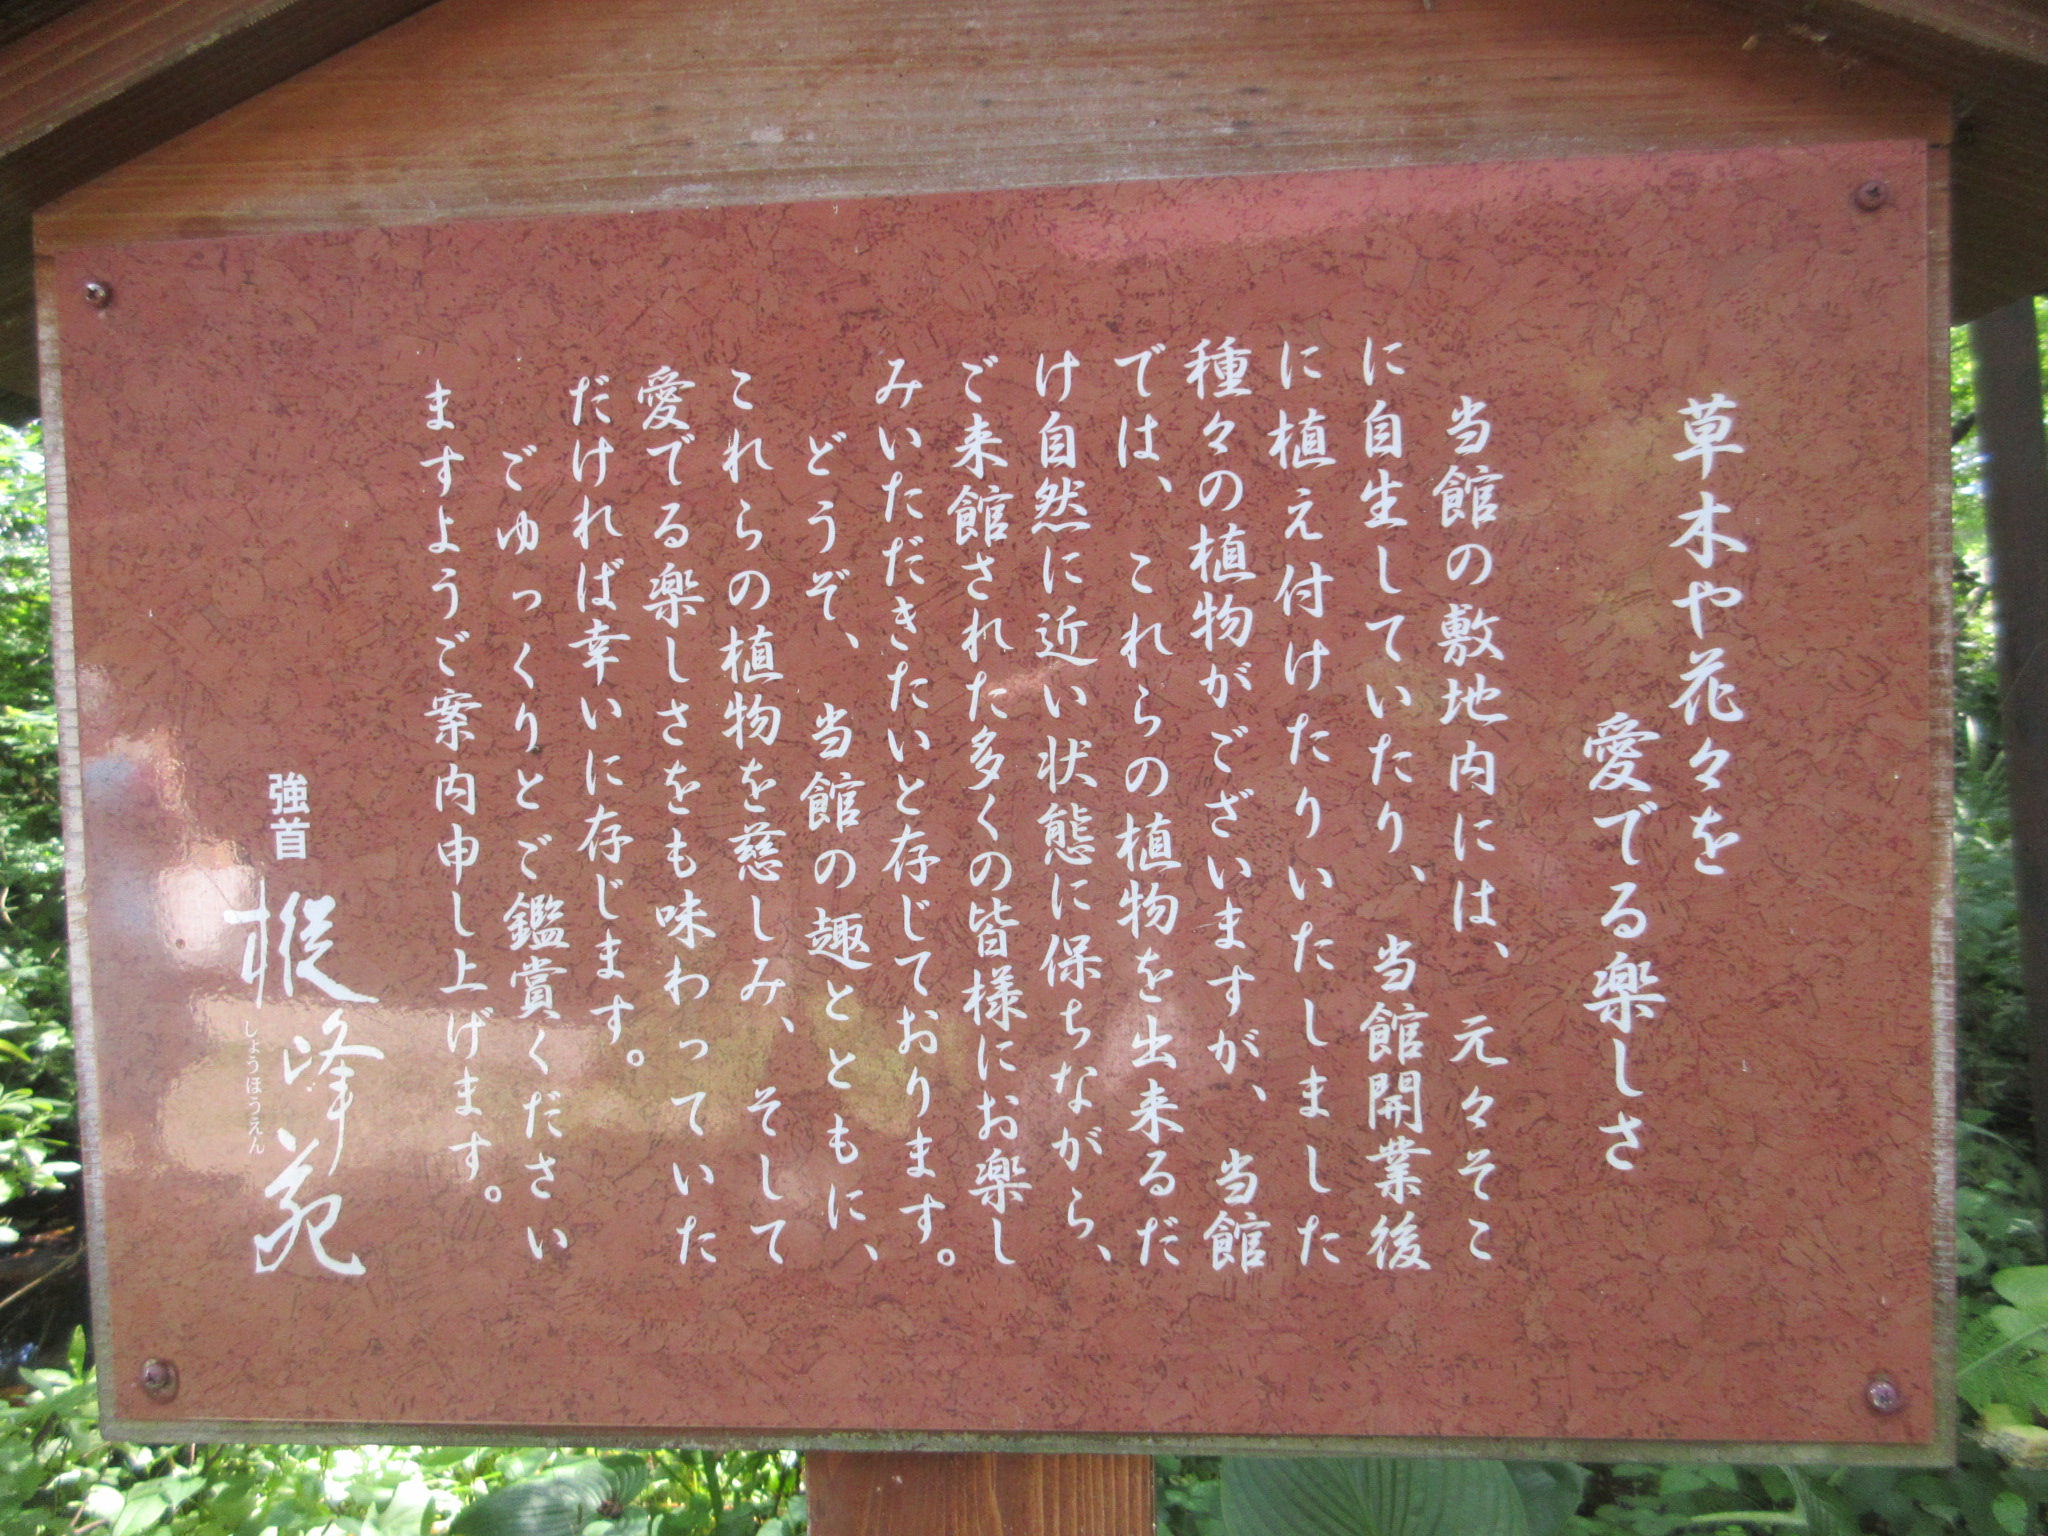 草木や花々を
愛でる楽しさ
当館の敷地内には、元々そこ
に自生していたり、当館開業後
に植え付けたりいたしました
種々の植物がございますが、当館
では、これらの植物を出来るだ
け自然に近い状態に保ちながら、
ご来館された多くの皆様にお楽し
みいただきたいと存じております。
どうぞ、当館の趣とともに、
これらの植物を慈しみ、そして
愛でる楽しさをも味わっていた
だければ幸いに存じます。
ごゆっくりとご鑑賞ください
ますようご案内申し上げます。
強首
樅峰苑
しょうほうえん